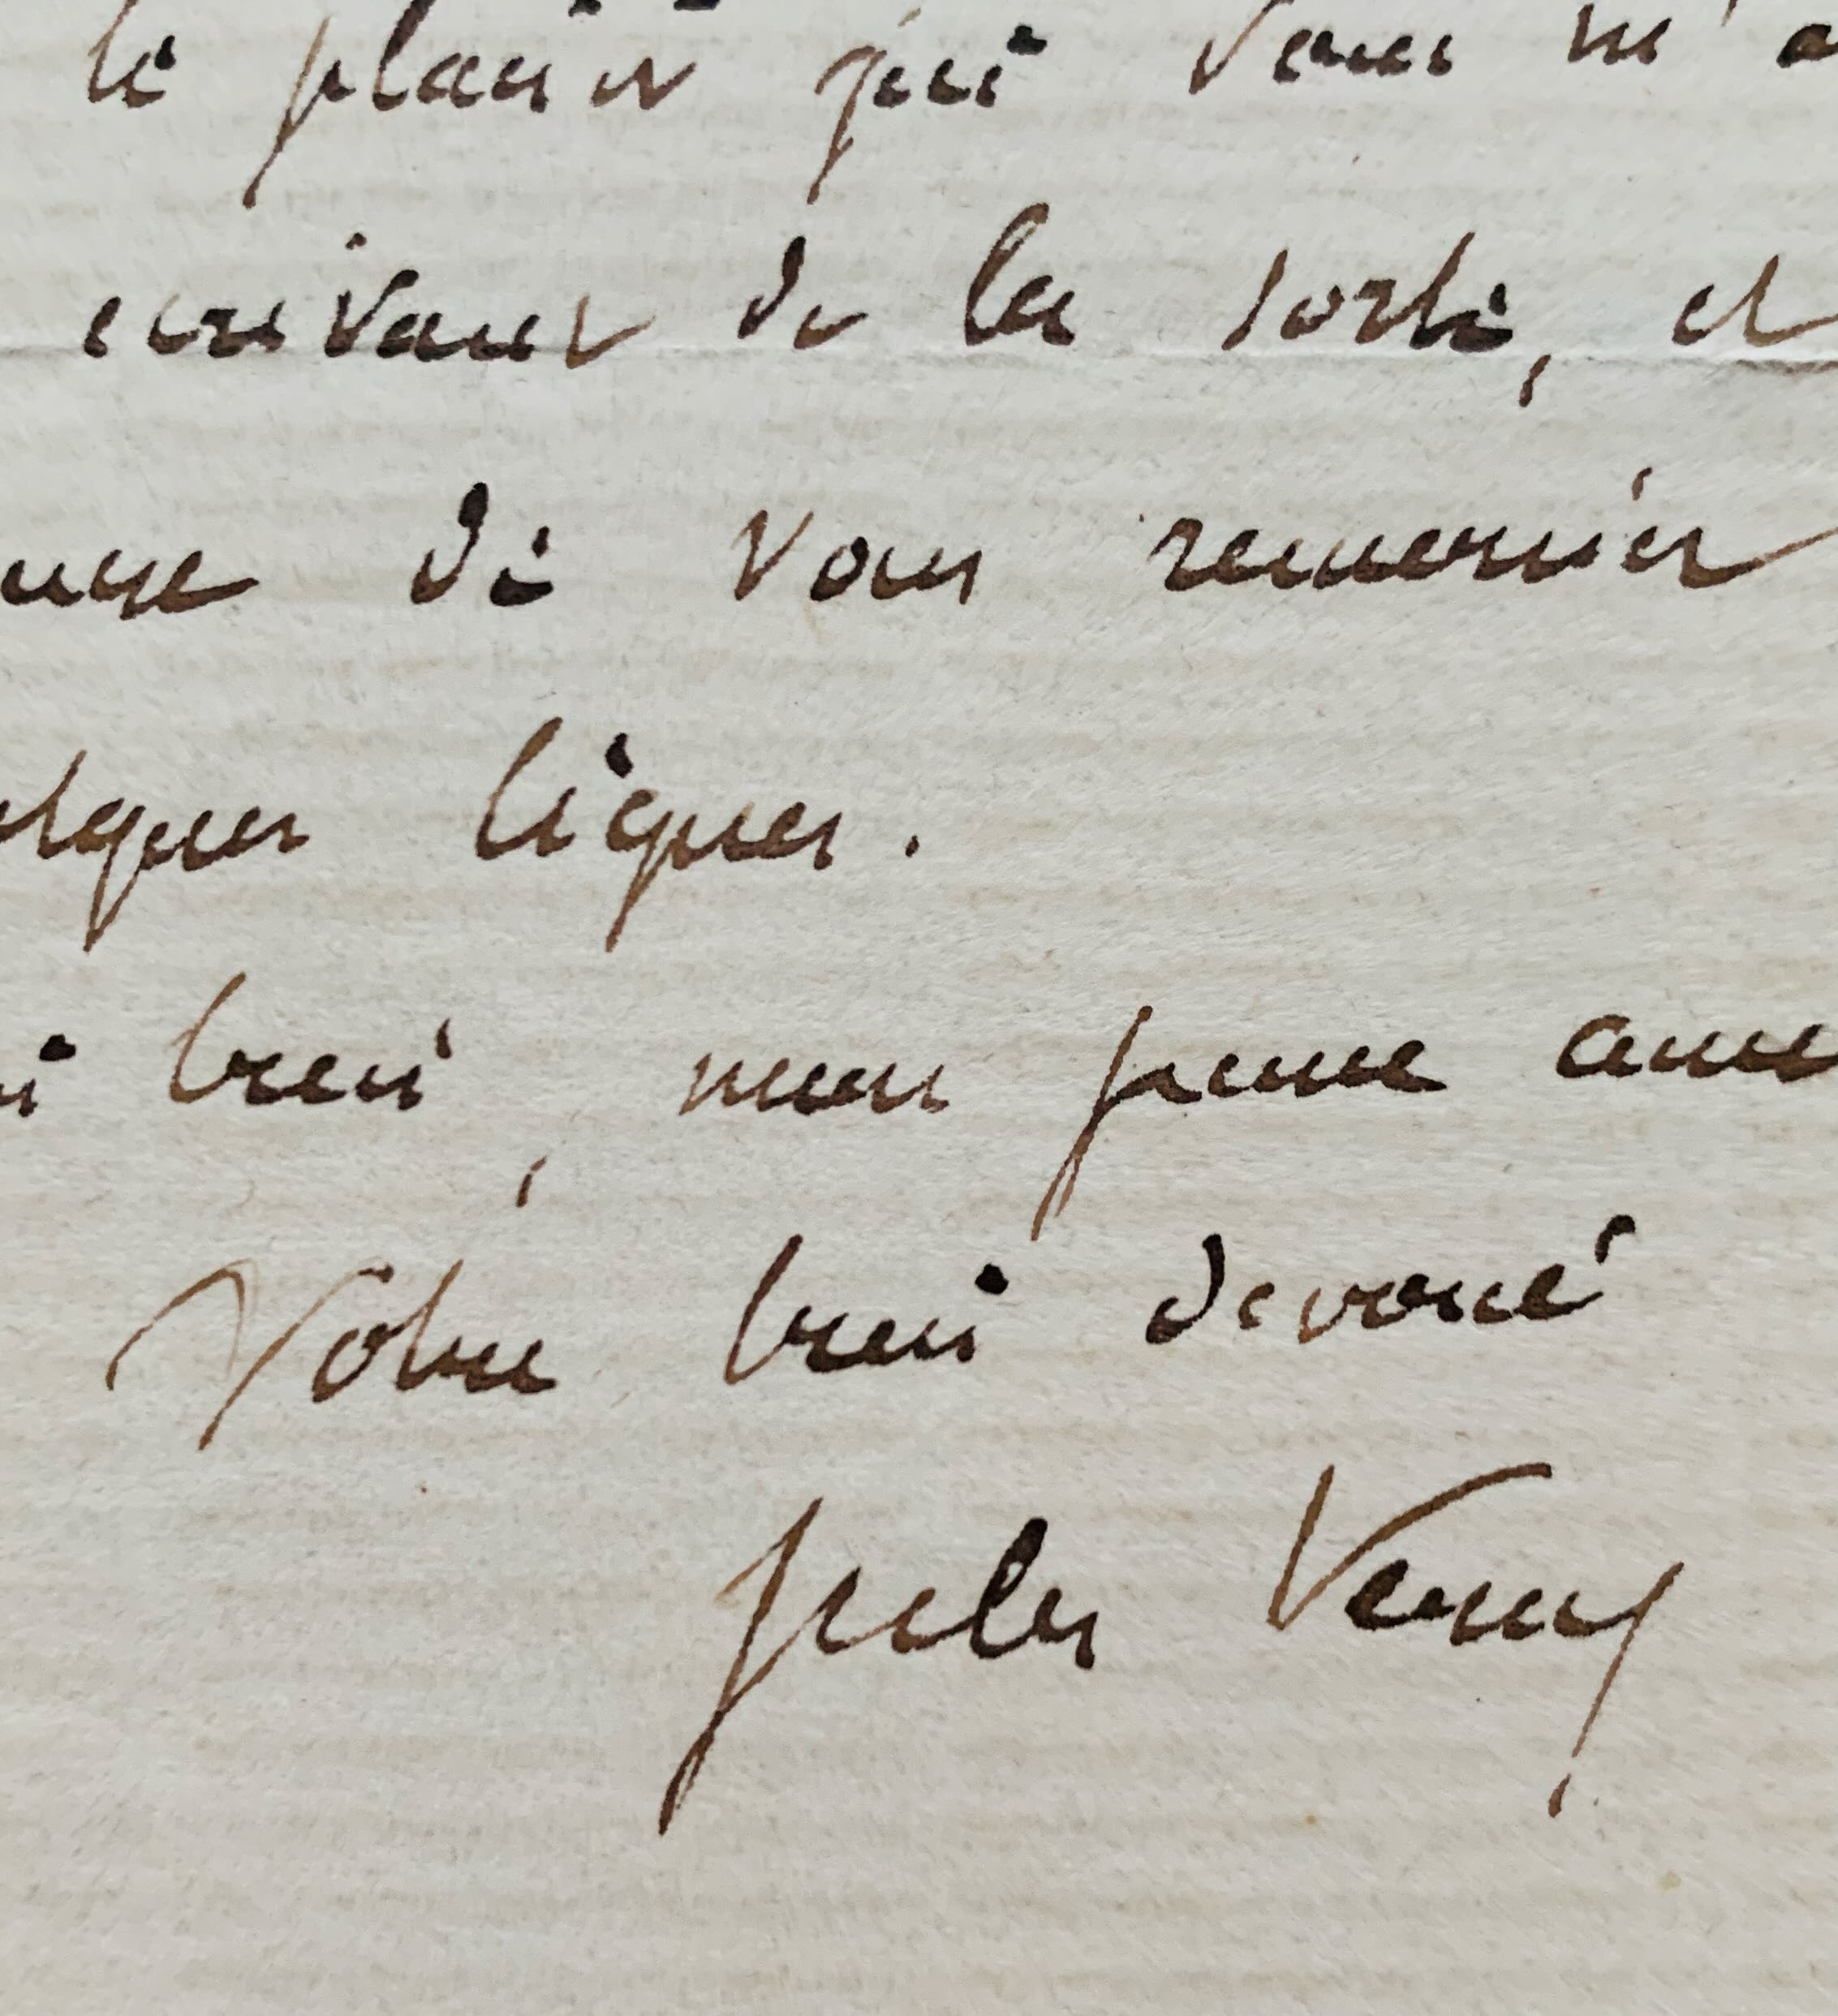 le plaisir que vous m'a
écrivant de la sorte, et
de vous remercier
lques lignes.
bien, mon jeune ami
Votre bien dévoué
Jules Verne